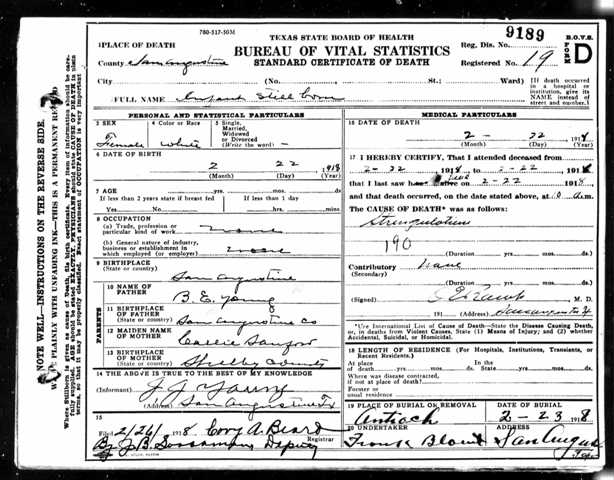 780-517-50M
TEXAS STATE BOARD OF HEALTH
BUREAU OF VITAL STATISTICS
STANDARD CERTIFICATE OF DEATH
9189
Reg. Dis. No.
Registered No. 19
B.O.V.S.
FORM D
1 PLACE OF DEATH
County San Augustine
City (No. St.; Ward)
[If death occurred in a hospital or institution, give its NAME instead of street and number.]
FULL NAME Infant Still Born
PERSONAL AND STATISTICAL PARTICULARS
3 SEX Female
4 Color or Race White
5 Single, Married, Widowed or Divorced (Write the word) -
6 DATE OF BIRTH
2 22 1918
(Month) (Day) (Year)
7 AGE yrs. mos. ds.
If less than 2 years state if breast fed
Yes No
If less than 1 day
hrs. mins.
8 OCCUPATION
(a) Trade, profession or particular kind of work none
(b) General nature of industry, business or establishment in which employed (or employer) none
9 BIRTHPLACE
(State or country) San Augustine
PARENTS
10 NAME OF FATHER B. E. Young
11 BIRTHPLACE OF FATHER
(State or country) San Augustine Co
12 MAIDEN NAME OF MOTHER Callie Sanford
13 BIRTHPLACE OF MOTHER
(State or country) Shelby County
14 THE ABOVE IS TRUE TO THE BEST OF MY KNOWLEDGE
(Informant) J J Young
(Address) San Augustine Tx
15
Filed 2/26/1918 Cory A. Beard
Registrar
By J.B. Sossaman Deputy
MEDICAL PARTICULARS
16 DATE OF DEATH
2 - 22 1918
(Month) (Day) (Year)
17 I HEREBY CERTIFY, That I attended deceased from
2-22 1918 to 2-22 1918
that I last saw alive on 2-22 1918
and that death occurred, on the date stated above, at m.
The CAUSE OF DEATH* was as follows:
Strangulation
190
(Duration yrs. mos. ds.
Contributory None
(Secondary)
(Duration yrs. mos. ds.
(Signed) M. D.
191 (Address)
*Use International List of Cause of Death—State the Disease Causing Death, or, in deaths from Violent Causes, State (1) Means of Injury; and (2) whether Accidental, Suicidal, or Homicidal.
18 LENGTH OF RESIDENCE (For Hospitals, Institutions, Transients, or Recent Residents.)
At place of death yrs. mos. ds. State yrs. mos. ds.
Where was disease contracted, if not at place of death?
Former or usual residence
19 PLACE OF BURIAL OR REMOVAL
Antioch
DATE OF BURIAL
2-23 1918
20 UNDERTAKER
Frank Blount
ADDRESS
San Augustine
NOTE WELL—INSTRUCTIONS ON THE REVERSE SIDE.
WRITE PLAINLY WITH UNFADING INK—THIS IS A PERMANENT RECORD